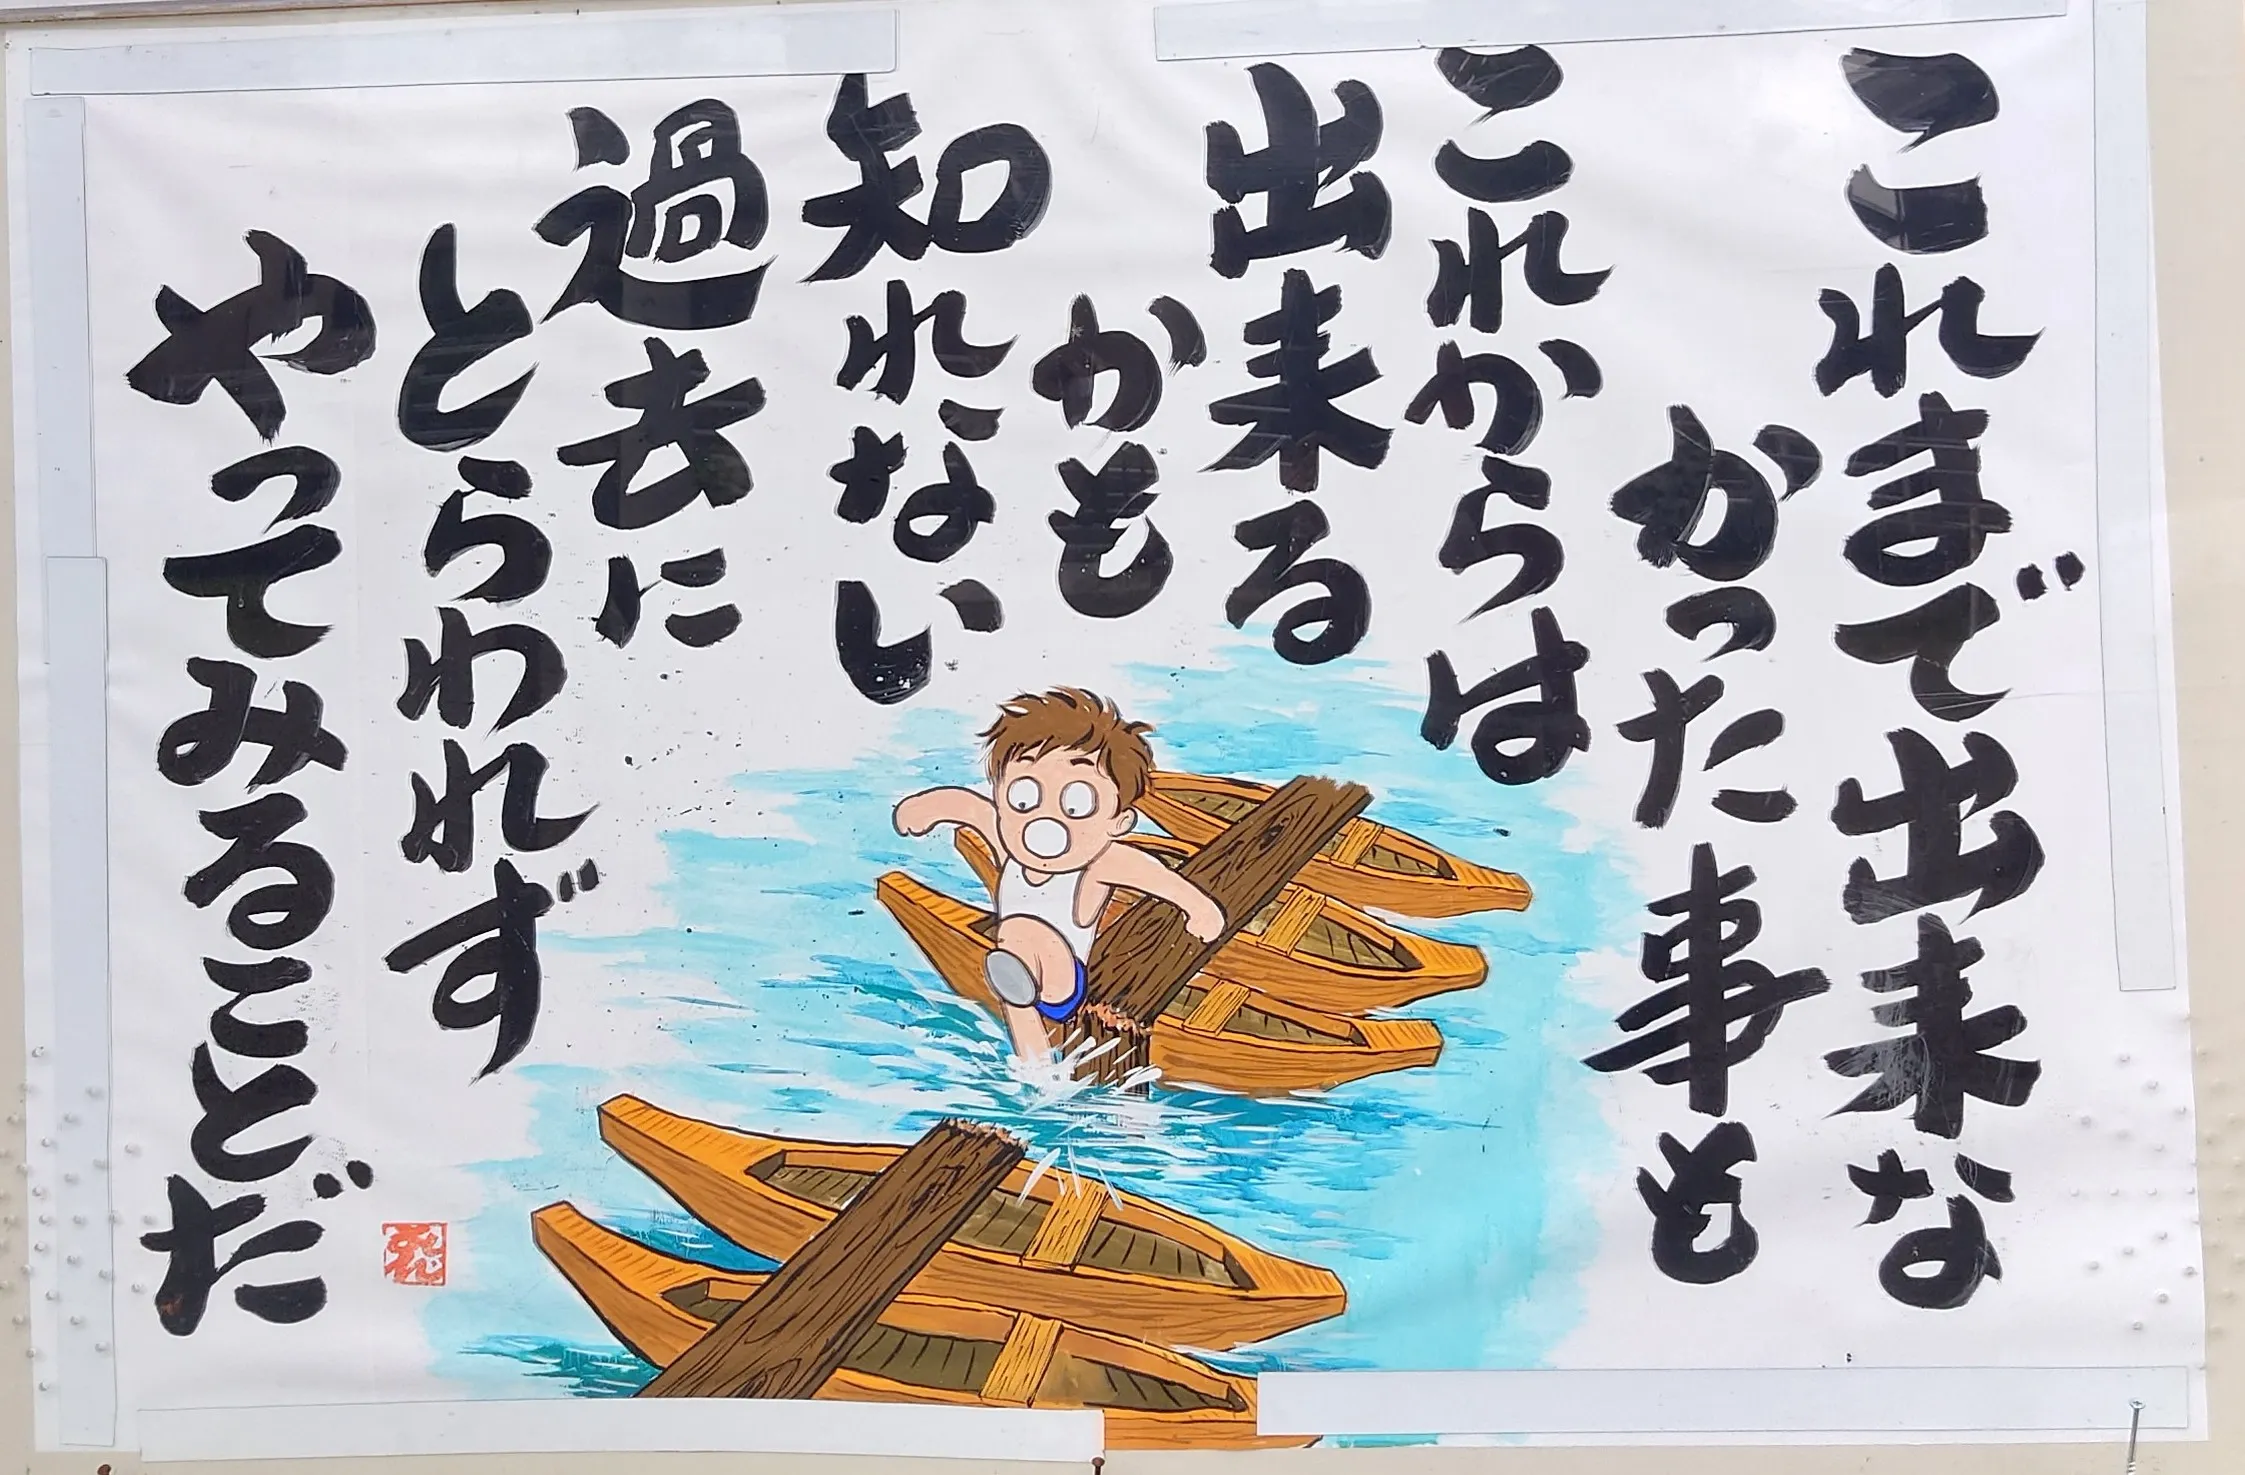 これまで出来な
かった事も
これからは
出来る
かも
知れない
過去に
とらわれず
やってみることだ